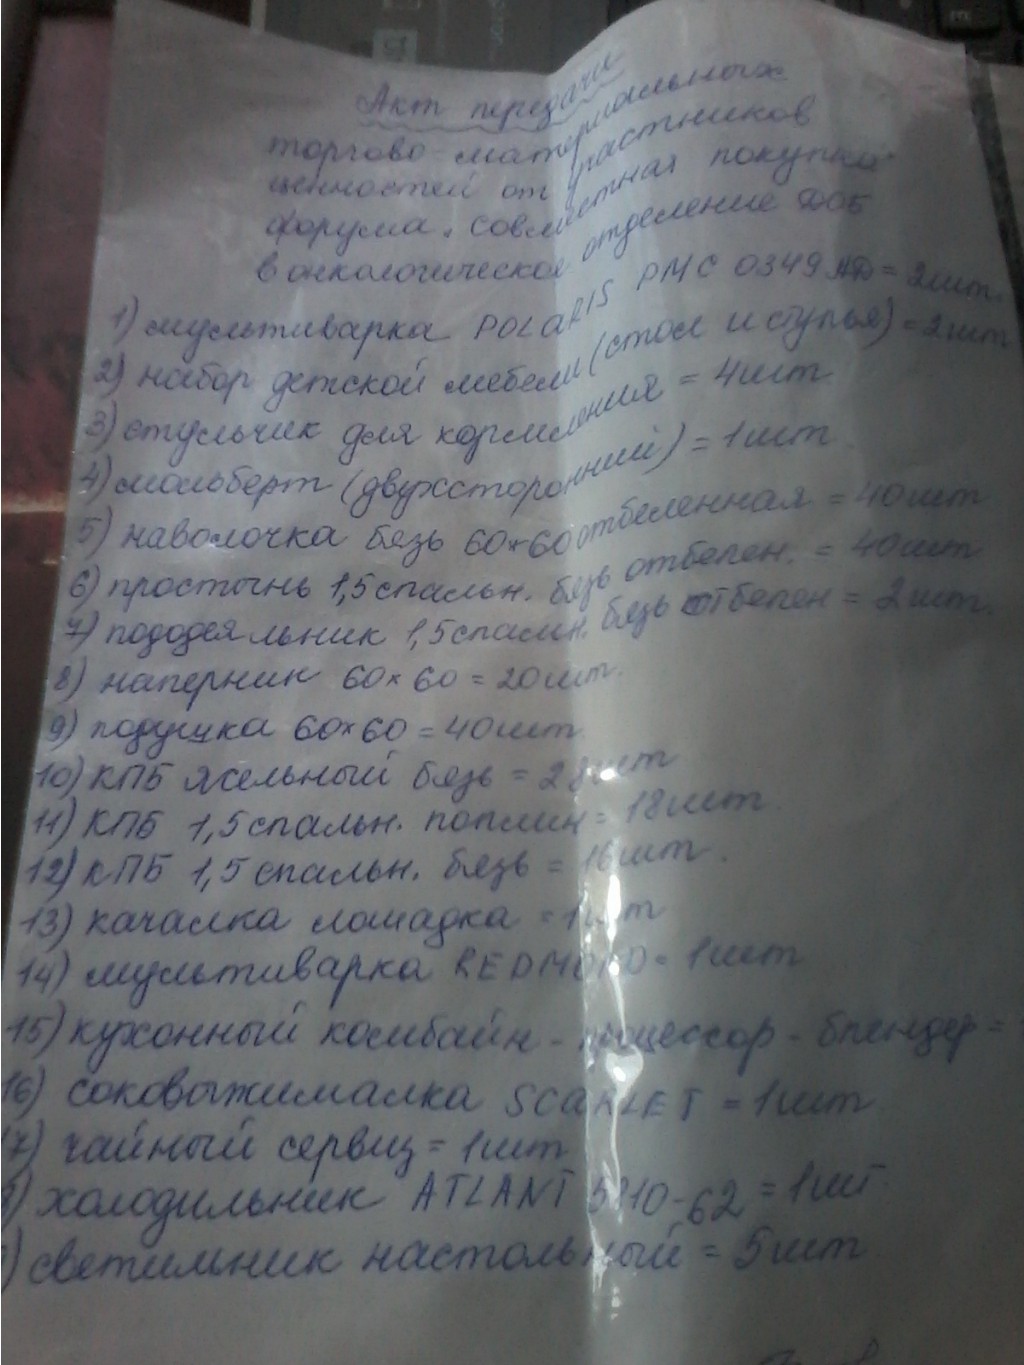 Акт передачи
торгово-материальных
ценностей от участников
форума. совместная покупка
в онкологическое отделение ДОБ
1) мультиварка POLARIS PMC 0349 AD = 2 шт.
2) набор детской мебели (стол и стулья) = 2 шт
3) стульчик для кормления = 4 шт
4) мольберт (двухсторонний) = 1 шт.
5) наволочка бязь 60×60 отбеленная = 40 шт
6) простынь 1,5 спальн. бязь отбелен. = 40 шт
7) пододеяльник 1,5 спальн. бязь отбелен = 2 шт.
8) наперник 60×60 = 20 шт.
9) подушка 60×60 = 40 шт.
10) КПБ ясельный бязь = 28 шт
11) КПБ 1,5 спальн. поплин = 18 шт.
12) КПБ 1,5 спальн. бязь = 16 шт.
13) качалка лошадка = 1 шт
14) мультиварка REDMOND = 1 шт
15) кухонный комбайн - процессор - блендер =
16) соковыжималка SCARLET = 1 шт
7) чайный сервиз = 1 шт
8) холодильник ATLANT 5810-62 = 1 шт
) светильник настольный = 5 шт